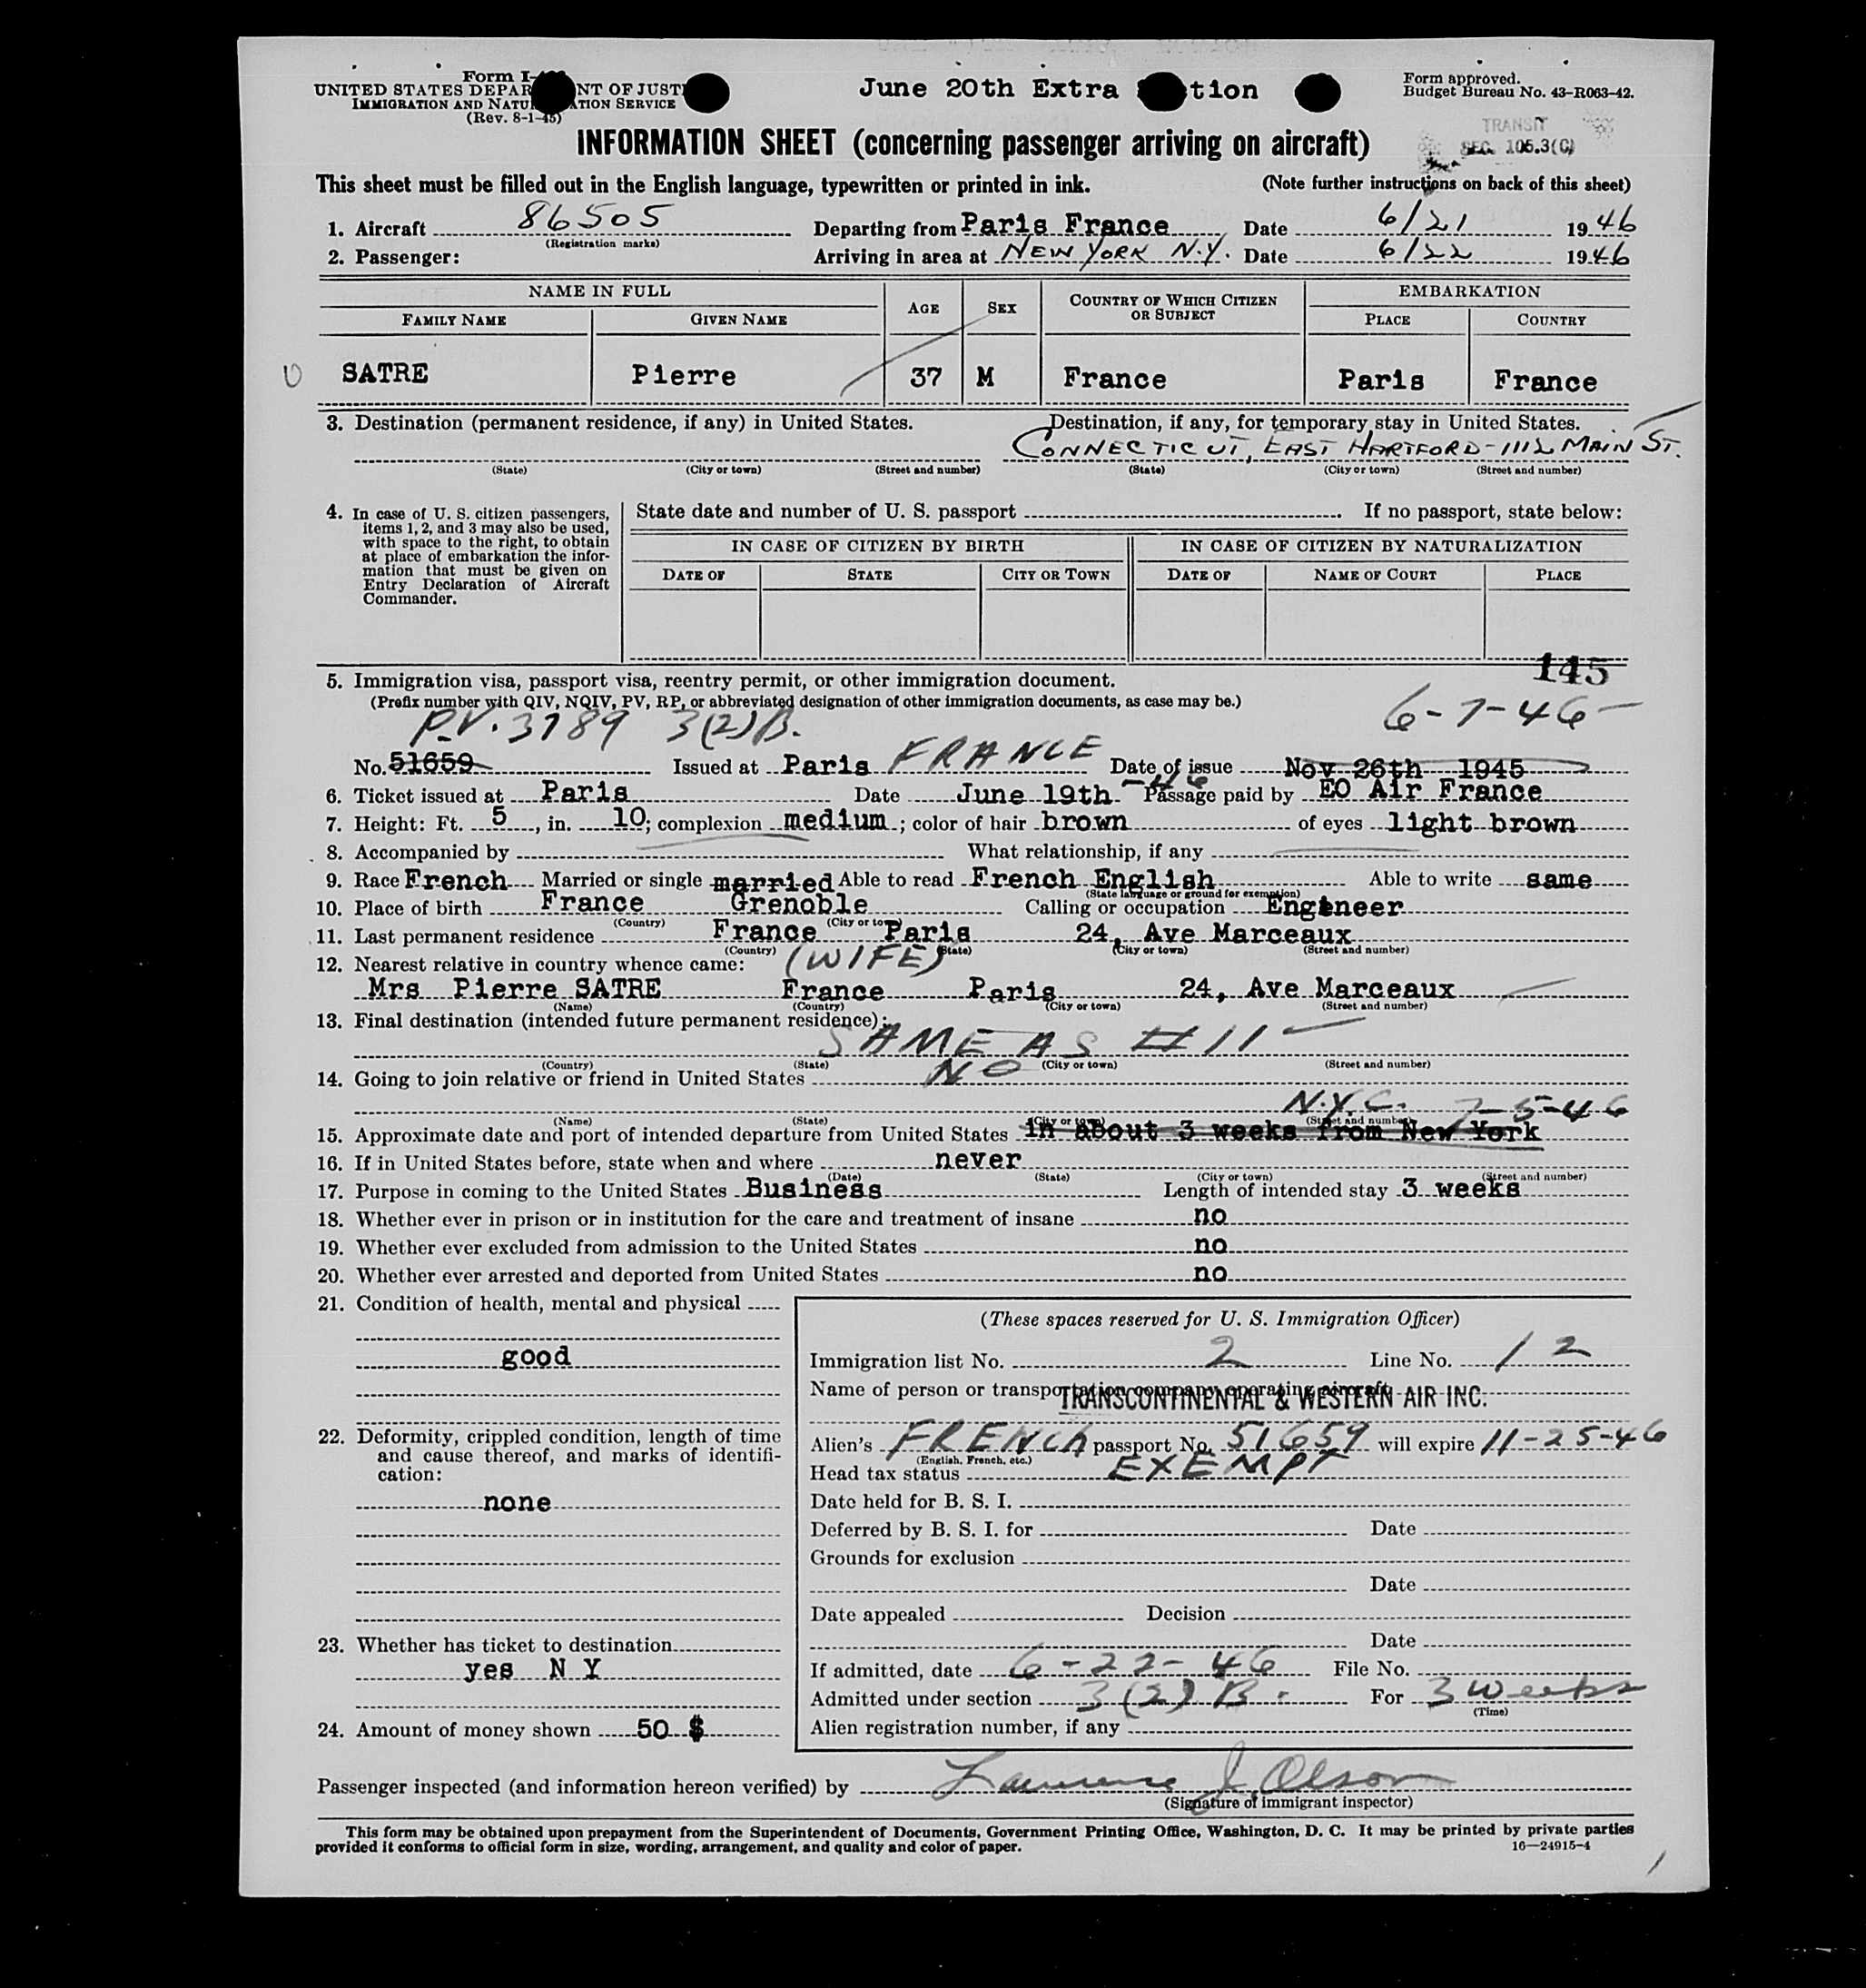 Form I-
June 20th Extra tion
Form approved.
UNITED STATES DEPAR NT OF JUST
Budget Bureau No. 43-R063-42.
IMMIGRATION AND NATU ATION SERVICE
(Rev. 8-1-45)
TRANSIT
SEC. 105.3(C)
INFORMATION SHEET (concerning passenger arriving on aircraft)
This sheet must be filled out in the English language, typewritten or printed in ink. (Note further instructions on back of this sheet)
1. Aircraft 86505 Departing from Paris France Date 6/21 1946
(Registration marks)
2. Passenger: Arriving in area at NEW YORK N.Y. Date 6/22 1946
NAME IN FULL AGE SEX COUNTRY OF WHICH CITIZEN OR SUBJECT EMBARKATION
FAMILY NAME GIVEN NAME PLACE COUNTRY
SATRE Pierre 37 M France Paris France
3. Destination (permanent residence, if any) in United States. Destination, if any, for temporary stay in United States.
CONNECTICUT, EAST HARTFORD-1112 MAIN ST.
(State) (City or town) (Street and number) (State) (City or town) (Street and number)
4. In case of U. S. citizen passengers,
items 1, 2, and 3 may also be used,
with space to the right, to obtain
at place of embarkation the infor-
mation that must be given on
Entry Declaration of Aircraft
Commander.
State date and number of U. S. passport If no passport, state below:
IN CASE OF CITIZEN BY BIRTH IN CASE OF CITIZEN BY NATURALIZATION
DATE OF STATE CITY OR TOWN DATE OF NAME OF COURT PLACE
145
5. Immigration visa, passport visa, reentry permit, or other immigration document.
(Prefix number with QIV, NQIV, PV, RP, or abbreviated designation of other immigration documents, as case may be.)
P.V. 3789 3(2)B. 6-7-46
No. 51659 Issued at Paris FRANCE Date of issue Nov 26th 1945
6. Ticket issued at Paris Date June 19th -46 Passage paid by EO Air France
7. Height: Ft. 5, in. 10; complexion medium; color of hair brown of eyes light brown
8. Accompanied by What relationship, if any
9. Race French Married or single married Able to read French English Able to write same
(State language or ground for exemption)
10. Place of birth France Grenoble Calling or occupation Engineer
(Country) (City or town)
11. Last permanent residence France Paris 24, Ave Marceaux
(Country) (State) (City or town) (Street and number)
12. Nearest relative in country whence came: (WIFE)
Mrs Pierre SATRE France Paris 24, Ave Marceaux
(Name) (Country) (City or town) (Street and number)
13. Final destination (intended future permanent residence):
SAME AS #11
(Country) (State) (City or town) (Street and number)
14. Going to join relative or friend in United States NO
N.Y.C. 7-5-46
(Name) (State) (City or town) (Street and number)
15. Approximate date and port of intended departure from United States in about 3 weeks from New York
16. If in United States before, state when and where never
(Date) (State) (City or town) (Street and number)
17. Purpose in coming to the United States Business Length of intended stay 3 weeks
18. Whether ever in prison or in institution for the care and treatment of insane no
19. Whether ever excluded from admission to the United States no
20. Whether ever arrested and deported from United States no
21. Condition of health, mental and physical
good
22. Deformity, crippled condition, length of time
and cause thereof, and marks of identifi-
cation:
none
23. Whether has ticket to destination
yes N Y
24. Amount of money shown 50 $
(These spaces reserved for U. S. Immigration Officer)
Immigration list No. 2 Line No. 12
Name of person or transportation company operating aircraft
TRANSCONTINENTAL & WESTERN AIR INC.
Alien's FRENCH passport No. 51659 will expire 11-25-46
(English, French, etc.)
Head tax status EXEMPT
Date held for B. S. I.
Deferred by B. S. I. for Date
Grounds for exclusion
Date
Date appealed Decision
Date
If admitted, date 6-22-46 File No.
Admitted under section 3(2)B. For 3 weeks
(Time)
Alien registration number, if any
Passenger inspected (and information hereon verified) by Lawrence J. Olson
(Signature of immigrant inspector)
This form may be obtained upon prepayment from the Superintendent of Documents, Government Printing Office, Washington, D. C. It may be printed by private parties
provided it conforms to official form in size, wording, arrangement, and quality and color of paper. 16—24915-4